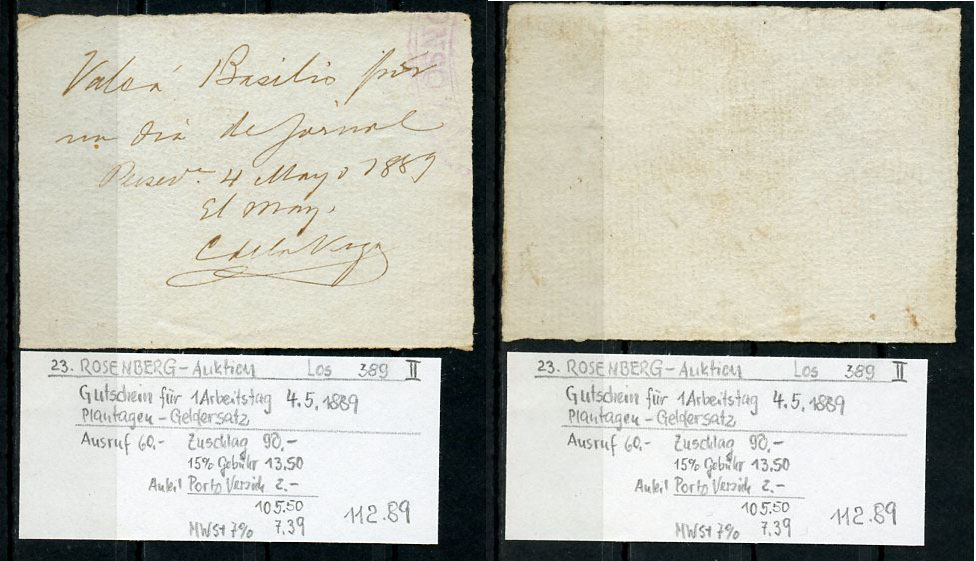 Valea Basilio por
un dia de jornal
4 Mayo 1889
El May.
C de la Vega
23. ROSENBERG-Auktion Los 389 II
Gutschein für 1 Arbeitstag 4.5.1889
Plantagen-Geldersatz
Ausruf 60.- Zuschlag 90,-
15% Gebühr 13.50
Anteil Porto Versich 2.-
105.50
MWSt 7% 7.39 112.89
23. ROSENBERG-Auktion Los 389 II
Gutschein für 1 Arbeitstag 4.5.1889
Plantagen-Geldersatz
Ausruf 60.- Zuschlag 90,-
15% Gebühr 13.50
Anteil Porto Versich 2.-
105.50
MWSt 7% 7.39 112.89